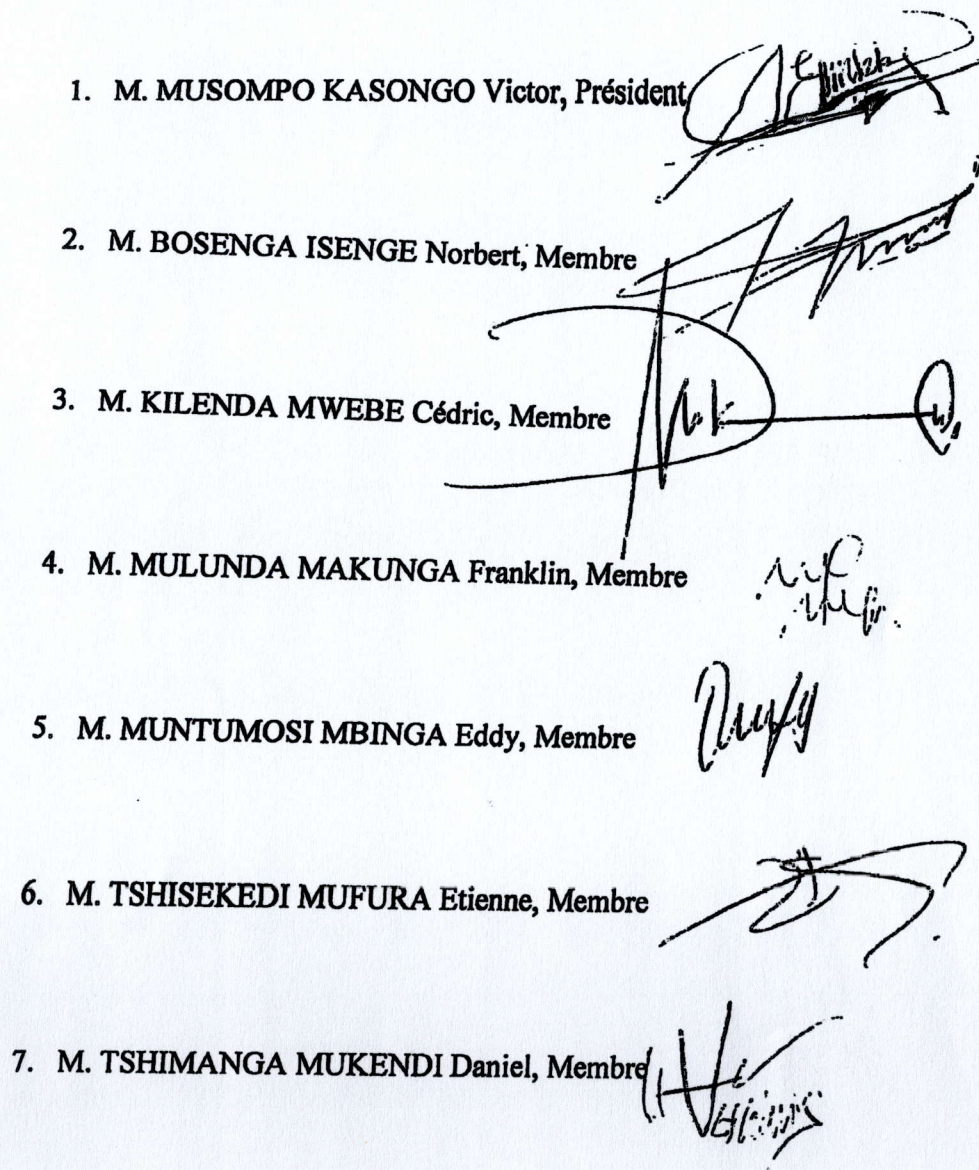 1. M. MUSOMPO KASONGO Victor, Président
2. M. BOSENGA ISENGE Norbert, Membre
3. M. KILENDA MWEBE Cédric, Membre
4. M. MULUNDA MAKUNGA Franklin, Membre
5. M. MUNTUMOSI MBINGA Eddy, Membre
6. M. TSHISEKEDI MUFURA Etienne, Membre
7. M. TSHIMANGA MUKENDI Daniel, Membre